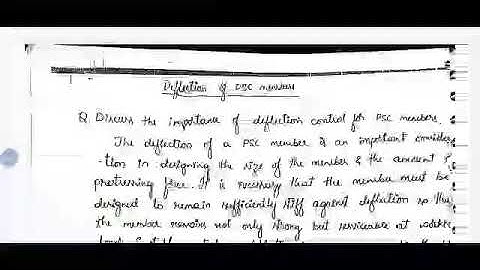 Deflection of PSC members
Q. Discuss the importance of deflection control for PSC members.
The deflection of a PSC member is an important consider
-tion in designing the size of the member & the amount of
prestressing force. It is necessary that the member must be
designed to remain sufficiently stiff against deflection so that
the member remains not only strong but serviceable at